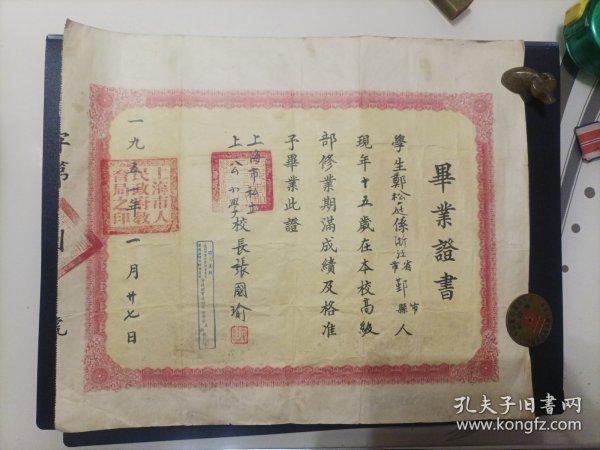 畢業證書
學生鄭松庭係浙江省市鄞縣市人
現年十五歲在本校高級
部修業期滿成績及格准
予畢業此證
上海市私立
上公小學校長張國瑜
一九五一年一月廿七日
上海市人民政府教育局之印
字第號
孔夫子旧书网
www.kongfz.com